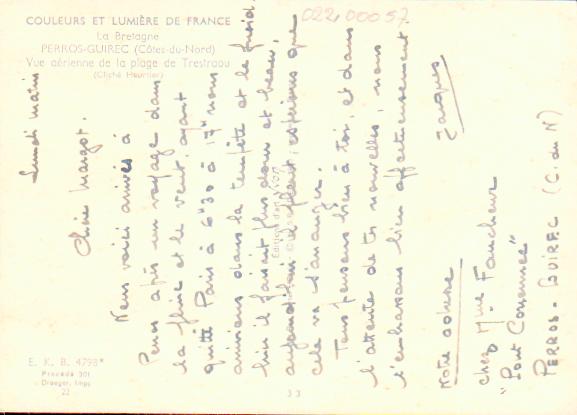 COULEURS ET LUMIÈRE DE FRANCE
La Bretagne
PERROS-GUIREC (Côtes-du-Nord)
Vue aérienne de la plage de Trestraou
(Cliché Heurtier)
022 00057
Lundi matin
Chère Margot.
Nous voici arrivés à
Perros après un voyage dans
la pluie et le vent, ayant
quitté Paris à 6h30 à 17h nous
arrivions dans la tempête et le froid
hier il faisait plus doux et beau,
aujourd'hui il pleut, espérons que
cela va s'arranger.
Tous pensons bien à toi, et dans
l'attente de tes nouvelles, nous
t'embrassons bien affectueusement
Jacques
Notre adresse
chez Mme Faucheur
"Pont Couennec"
PERROS-GUIREC (C. du N)
Editions d'art YVON
E. K. B. 4798*
Procédé 301
Draeger, Imp.
22
33